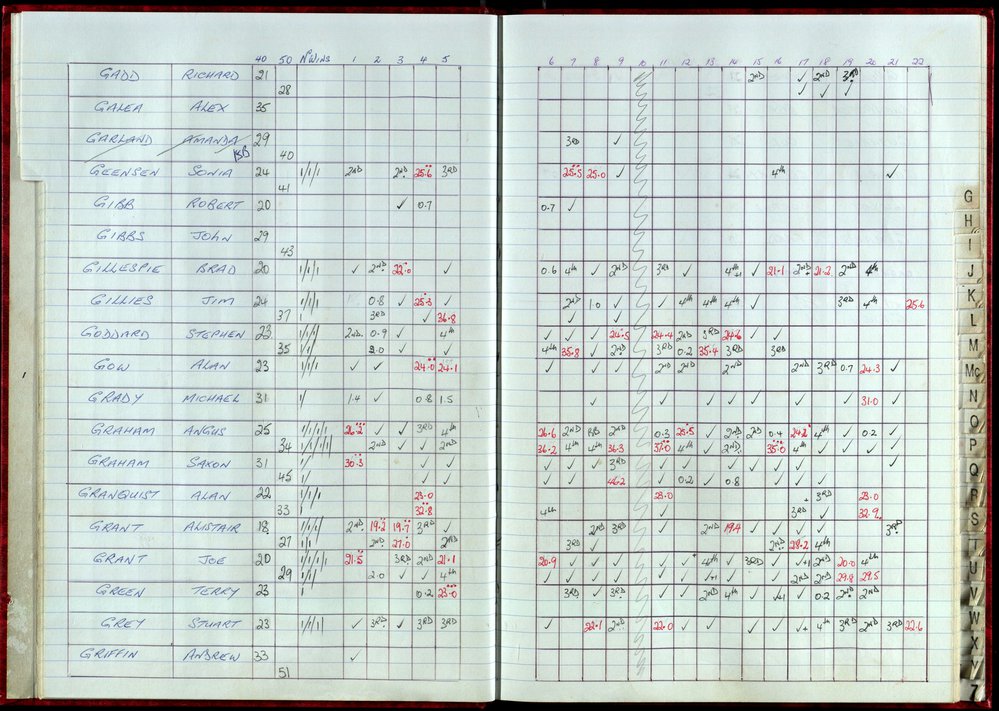 40 50 Nº WINS 1 2 3 4 5 6 7 8 9 10 11 12 13 14 15 16 17 18 19 20 21 22
GADD RICHARD 21 2ND ✓ 2ND 3RD
28 ✓ ✓ ✓
GALEA ALEX 35
GARLAND AMANDA 29 3RD ✓
40
GEENSEN SONIA 24 1/1/1 2ND 2ND 25.6 3RD 25.5 25.0 ✓ 4th ✓
41
GIBB ROBERT 20 ✓ 0.7 0.7 ✓
GIBBS JOHN 29
43
GILLESPIE BRAD 20 1/1/1 ✓ 2ND 22.0 ✓ 0.6 4th ✓ 2ND 3RD ✓ 4th ✓ 21.1 2ND 21.2 2ND 4th
GILLIES JIM 24 0.8 ✓ 25.3 ✓ 2ND 1.0 ✓ ✓ 4th 4th 4th ✓ 3RD 4th 25.6
37 3RD ✓ 36.8 ✓ ✓
GODDARD STEPHEN 23 2ND 0.9 ✓ 4th ✓ ✓ ✓ 24.5 24.4 2ND 3RD 24.6
35 2.0 ✓ ✓ 4th 35.8 ✓ 2ND 3RD 0.2 35.4 3RD 3RD
GOW ALAN 23 ✓ ✓ 24.0 24.1 2ND 2ND 2ND 2ND 3RD 0.7 24.3 ✓
GRADY MICHAEL 31 1.4 ✓ 0.8 1.5 ✓ ✓ ✓ ✓ ✓ 31.0 ✓
GRAHAM ANGUS 25 26.2 ✓ ✓ 3RD 4th 26.6 2ND 2ND 0.3 25.5 ✓ 2ND 2ND 0.4 24.2 4th ✓ 0.2 ✓
34 2ND ✓ ✓ 2ND 36.2 4th 4th 36.3 37.0 4th ✓ 2ND 35.0 4th ✓ ✓ ✓
GRAHAM SAXON 31 1 30.3 ✓ ✓ ✓ ✓ ✓ 3RD ✓ ✓ ✓ ✓ ✓ ✓ ✓
45 1 ✓ ✓ ✓ ✓ ✓ 46.2 ✓ 0.2 ✓ 0.8
GRANQUIST ALAN 22 1/1/1 23.0 23.0 3RD 23.0
33 32.8 4th ✓ 3RD ✓ 32.9
GRANT ALISTAIR 18 2ND 19.2 19.7 3RD ✓ 2ND 3RD ✓ 2ND 19.4 ✓ ✓ ✓ ✓ 3RD
27 2ND 27.0 2ND 3RD ✓ 2ND 28.2 4th
GRANT JOE 20 21.5 3RD 2ND 21.1 20.9 ✓ ✓ ✓ ✓ 4th ✓ 3RD ✓ 2ND 20.0 4th
29 2.0 ✓ ✓ 4th ✓ ✓ ✓ ✓ ✓ ✓ ✓ ✓ ✓ 2ND 2ND 29.8 29.5
GREEN TERRY 23 1 0.2 23.0 3RD ✓ 3RD ✓ ✓ 2ND 4th ✓ 0.2 2ND 2ND
GREY STUART 23 ✓ 3RD ✓ 3RD 3RD ✓ 22.1 2ND 22.0 ✓ ✓ ✓ ✓ ✓ 4th 3RD 2ND 3RD 22.6
GRIFFIN ANDREW 33 ✓
51
G
H
I
J
K
L
M
Mc
N
O
P
Q
R
S
T
U
V
W
X
Y